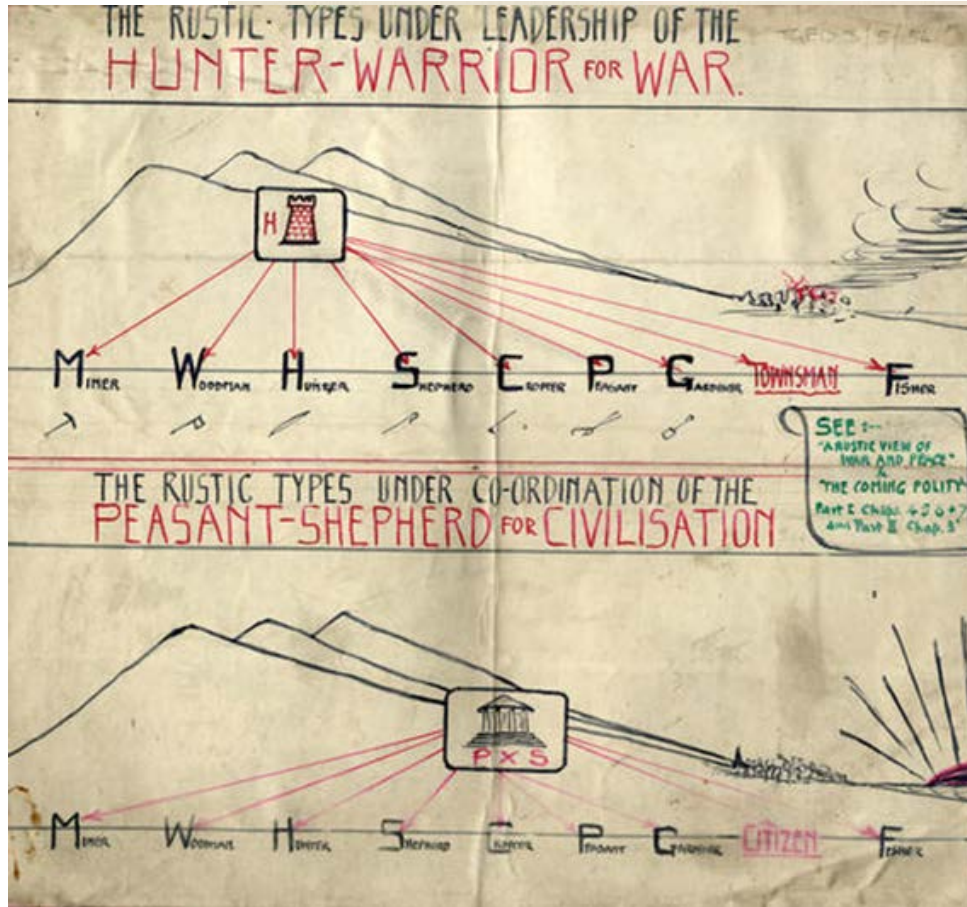 THE RUSTIC TYPES UNDER LEADERSHIP OF THE
HUNTER-WARRIOR FOR WAR.
H
MINER WOODMAN HUNTER SHEPHERD CROFTER PEASANT GARDENER TOWNSMAN FISHER
SEE :--
"A RUSTIC VIEW OF
WAR AND PEACE"
&
"THE COMING POLITY"
Part I Chaps 4 5 6 + 7
and Part II Chap. 3
THE RUSTIC TYPES UNDER CO-ORDINATION OF THE
PEASANT-SHEPHERD FOR CIVILISATION
P X S
MINER WOODMAN HUNTER SHEPHERD CROFTER PEASANT GARDENER CITIZEN FISHER